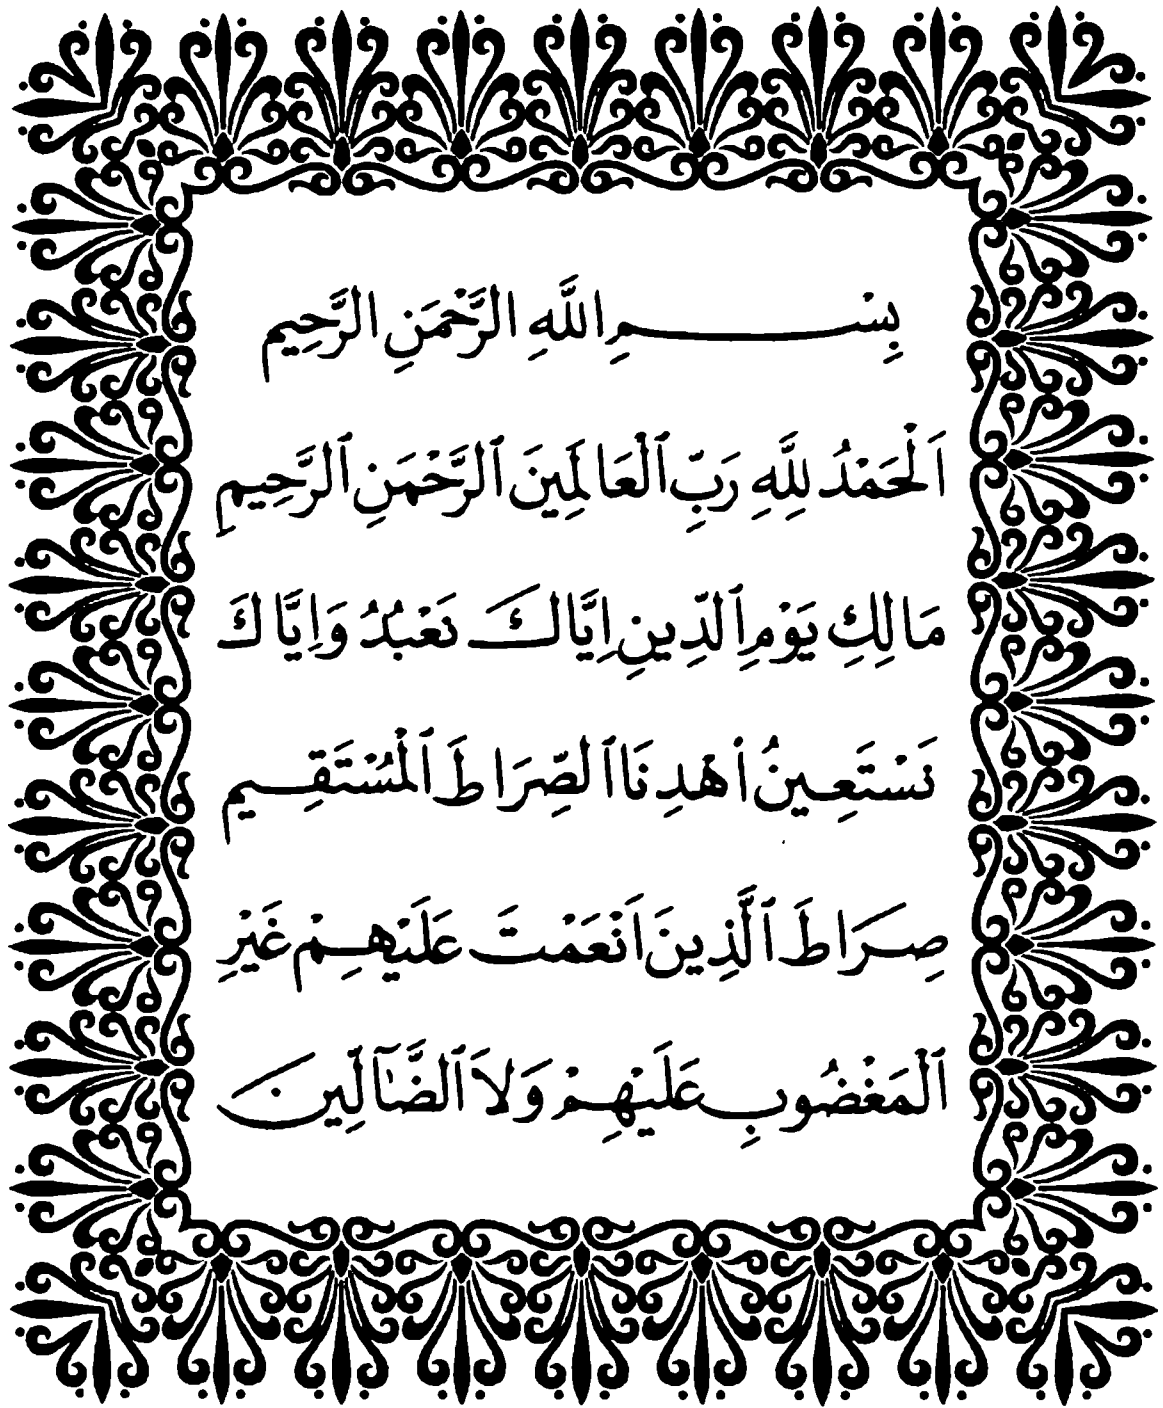 بِسْمِ اللَّهِ الرَّحْمَنِ الرَّحِيم
اَلْحَمْدُ لِلَّهِ رَبِّ ٱلْعَالَمِينَ ٱلرَّحْمَنِ ٱلرَّحِيمِ
مَالِكِ يَوْمِ ٱلدِّينِ اِيَّاكَ نَعْبُدُ وَاِيَّاكَ
نَسْتَعِينُ اهْدِنَا ٱلصِّرَاطَ ٱلْمُسْتَقِيم
صِرَاطَ ٱلَّذِينَ اَنْعَمْتَ عَلَيْهِمْ غَيْرِ
ٱلْمَغْضُوبِ عَلَيْهِمْ وَلاَ ٱلضَّآلِّين